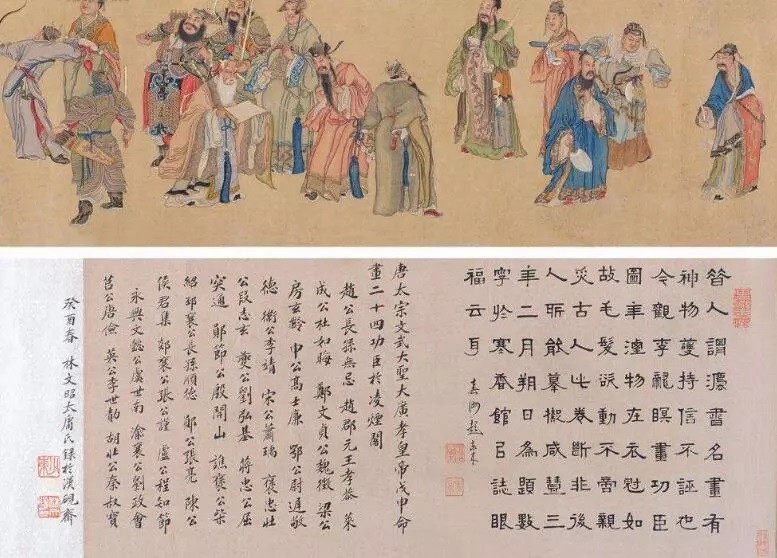 昔人謂灋書名畫有
神物護持信不誣也
今觀李龍瞑畫功臣
圖年湮物在衣冠如
故毛髮欲動不啻親
炙古人此卷斷非後
人所能摹擬咸豐三
年二月朔日為題數
字於寒香館㠯誌眼
福云耳
唐太宗文武大聖大廣孝皇帝戊申命
畫二十四功臣於凌煙閣
趙公長孫無忌 趙郡元王孝恭 萊
成公杜如晦 鄭文貞公魏徵 梁公
房玄齡 申公高士廉 鄂公尉遲敬
德 衞公李靖 宋公蕭瑀 褒忠壯
公段志玄 夔公劉弘基 蔣忠公屈
突通 鄖節公殷開山 譙襄公柴
紹 邳襄公長孫順德 鄖公張亮 陳公
侯君集 郯襄公張公謹 盧公程知節
永興文懿公虞世南 渝襄公劉政會
莒公唐儉 英公李世勣 胡壯公秦叔寶
癸酉春 林文昭太庸氏錄於漢硯齋